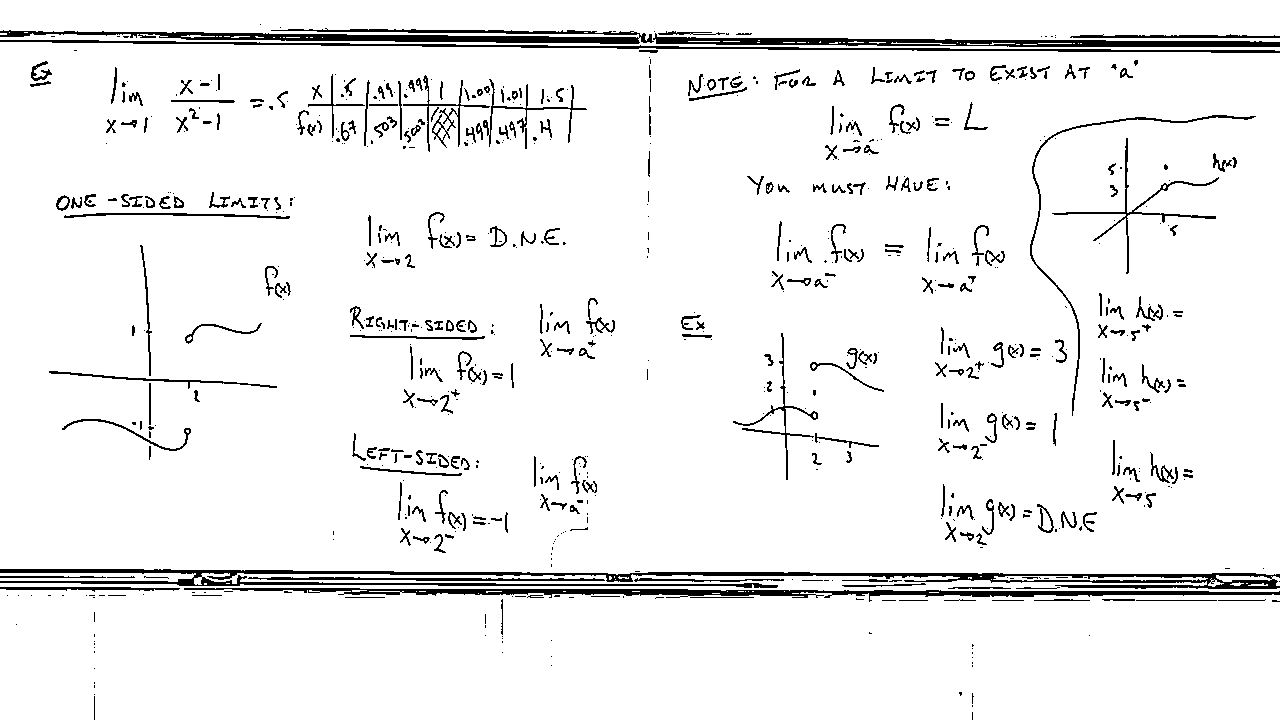 Ex
lim x→1 (x-1)/(x²-1) = .5
x | .5 | .99 | .999 | 1 | 1.001 | 1.01 | 1.5
f(x) | .67 | .503 | .5003 | | .499 | .497 | .4
ONE-SIDED LIMITS:
f(x)
1
2
-1
lim x→2 f(x) = D.N.E.
RIGHT-SIDED: lim x→a⁺ f(x)
lim x→2⁺ f(x) = 1
LEFT-SIDED: lim x→a⁻ f(x)
lim x→2⁻ f(x) = -1
NOTE: FOR A LIMIT TO EXIST AT "a"
lim x→a f(x) = L
YOU MUST HAVE:
lim x→a⁻ f(x) = lim x→a⁺ f(x)
Ex
g(x)
3
2
1
2 3
lim x→2⁺ g(x) = 3
lim x→2⁻ g(x) = 1
lim x→2 g(x) = D.N.E
h(x)
5
3
5
lim x→5⁺ h(x) =
lim x→5⁻ h(x) =
lim x→5 h(x) =